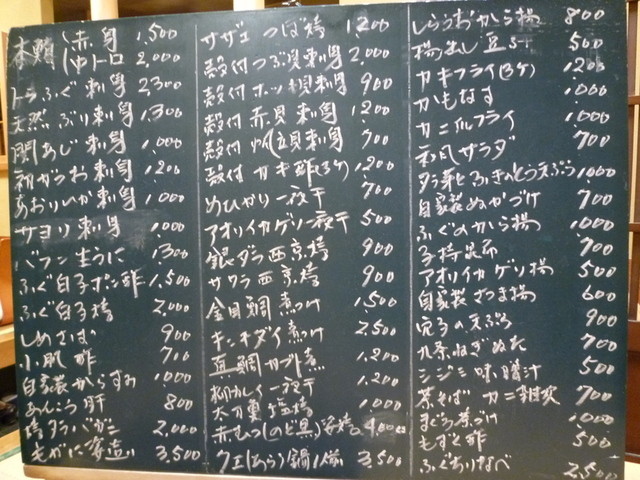 本鮪 赤身 1,500
中トロ 2,000
トラふぐ刺身 2300
天然ぶり刺身 1,300
関あじ刺身 1,000
初がつお刺身 1200
あおりいか刺身 1000
サヨリ刺身 1000
バフン生うに 1300
ふぐ白子ポン酢 1,500
ふぐ白子焼 2,000
しめさば 900
小肌酢 700
自家製からすみ 1000
あんこう肝 800
焼タラバガニ 2,000
毛がに 3,500
サザエつぼ焼 1200
殻付つぶ貝刺身 2,000
殻付ホッキ貝刺身 900
殻付赤貝刺身 1200
殻付帆立貝刺身 700
殻付カキ酢(3ヶ) 1,200
めひかり一夜干 700
アオリイカゲソ一夜干 500
銀ダラ西京焼 900
サワラ西京焼 900
金目鯛煮つけ 1,500
キンキ煮つけ 2,500
真鯛カブト煮 1,200
柳かれい一夜干 1,200
太刀重塩焼 1000
赤むつ(のど黒) 4000
クエ(あら)鍋1人前 3,500
しらうおから揚 800
揚出し豆ふ 500
カキフライ(3ケ) 1200
かもなす 1000
カニ爪フライ 1000
和風サラダ 700
タラ芽とふきのとう天ぷら 1000
自家製ぬかづけ 700
ふぐのから揚 1000
子持昆布 700
アオリイカゲソ揚 500
自家製さつま揚 600
穴子の天ぷら 900
九条ねぎぬた 700
シジミ味噌汁 500
茶そば カニ雑炊 700
まぐろ茶づけ 1000
もずく酢 500
ふぐちりなべ 2,500